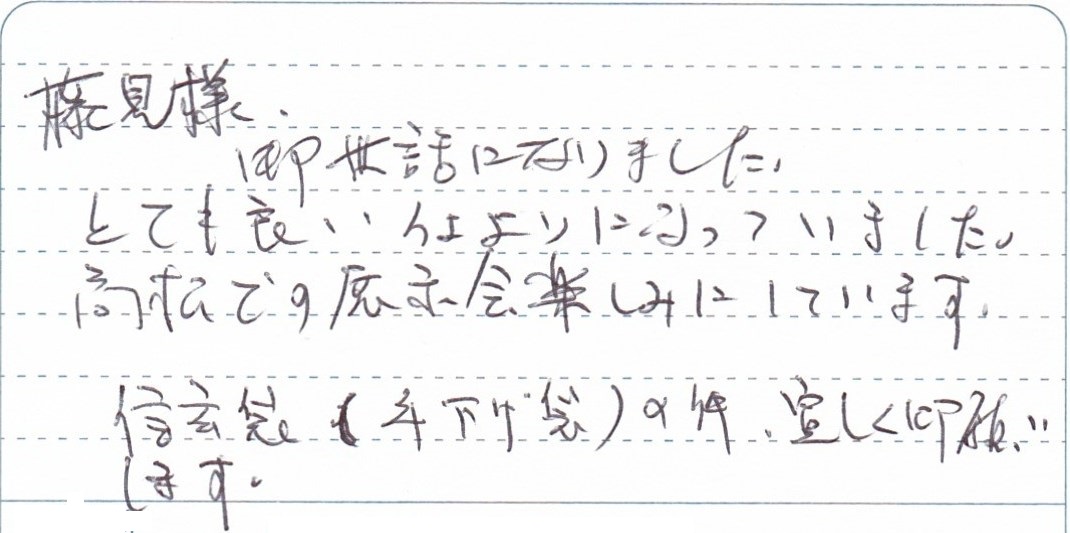 藤見様.
御世話になりました。
とても良い仕上りになっていました。
高松での展示会楽しみにしています。
信玄袋(手下げ袋)の件、宜しく御願い
します。